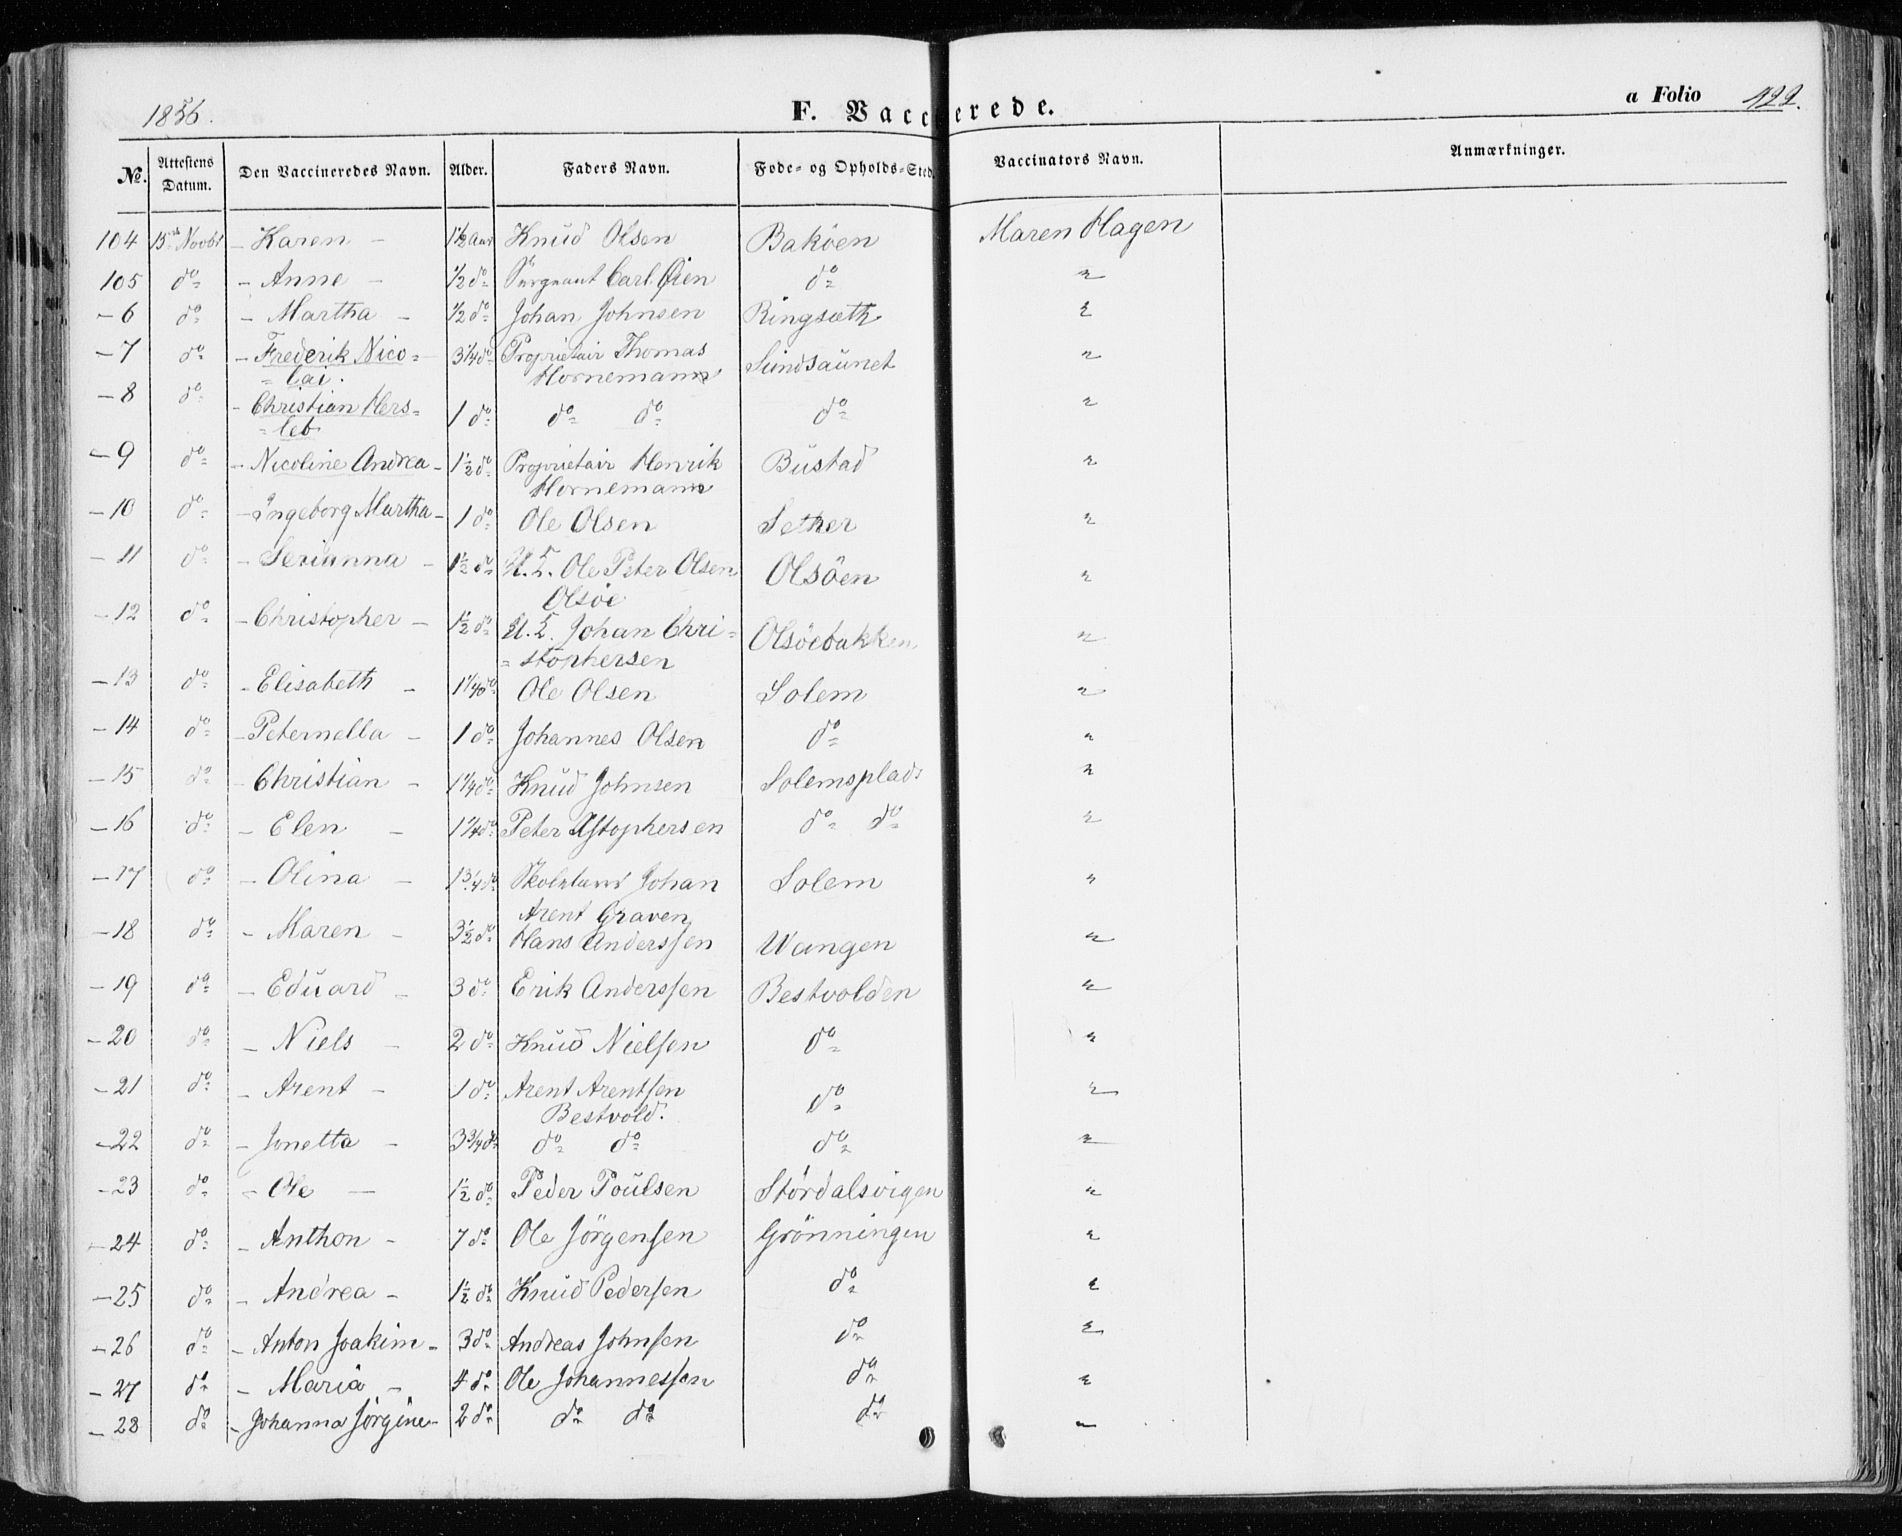 1856.
F. Vaccinerede.
a Folio 122.
No. Attestens Datum. Den Vaccineredes Navn. Alder. Faders Navn. Føde- og Opholds-Sted. Vaccinators Navn. Anmærkninger.
104 15de Novbr - Karen - 1½ Aar Knud Olsen Baköen Maren Hagen
105 do - Anne - ½ do Sergeant Carl Öien do "
- 6 do - Martha - ½ do Johan Johnsen Ringsæth "
- 7 do - Frederik Nico= 3¼ do Proprietair Thomas Sundsaunet "
= lai. Hornemann
- 8 do - Christian Hers= 1 do do do do "
= leb
- 9 do - Nicoline Andrea - 1½ do Proprietair Henrik Bustad "
Hornemann
- 10 do - Ingeborg Martha - 1 do Ole Olsen Sether "
- 11 do - Serianna - 1½ do U.L. Ole Peter Olsen Olsöen "
Olsöe
- 12 do - Christopher - 1½ do U.L. Johan Chri= Olsöebakken "
= stophersen
- 13 do - Elisabeth - 1¼ do Ole Olsen Solem "
- 14 do - Peternella - 1 do Johannes Olsen do "
- 15 do - Christian - 1¼ do Knud Johnsen Solemsplads "
- 16 do - Elen - 1¼ do Peter Xstophersen do do "
- 17 do - Olina - 1¾ do Skolelærer Johan Solem "
Arent Graven
- 18 do - Maren - 3½ do Hans Anderssen Wangen "
- 19 do - Eduard - 3 do Erik Anderssen Bestvolden "
- 20 do - Niels - 2 do Knud Nielsen do "
- 21 do - Arent - 1 do Arent Arentsen do "
Bestvold.
- 22 do - Jonetta - 3¾ do do do do "
- 23 do - Ole - 1½ do Peder Poulsen Stördalsvigen "
- 24 do - Anthon - 7 do Ole Jörgensen Grönningen "
- 25 do - Andrea - 1½ do Knud Pedersen do "
- 26 do - Anton Joakim - 3 do Andreas Johnsen do "
- 27 do - Maria - 4 do Ole Johannessen do "
- 28 do - Johanna Jörgine - 2 do do do do "